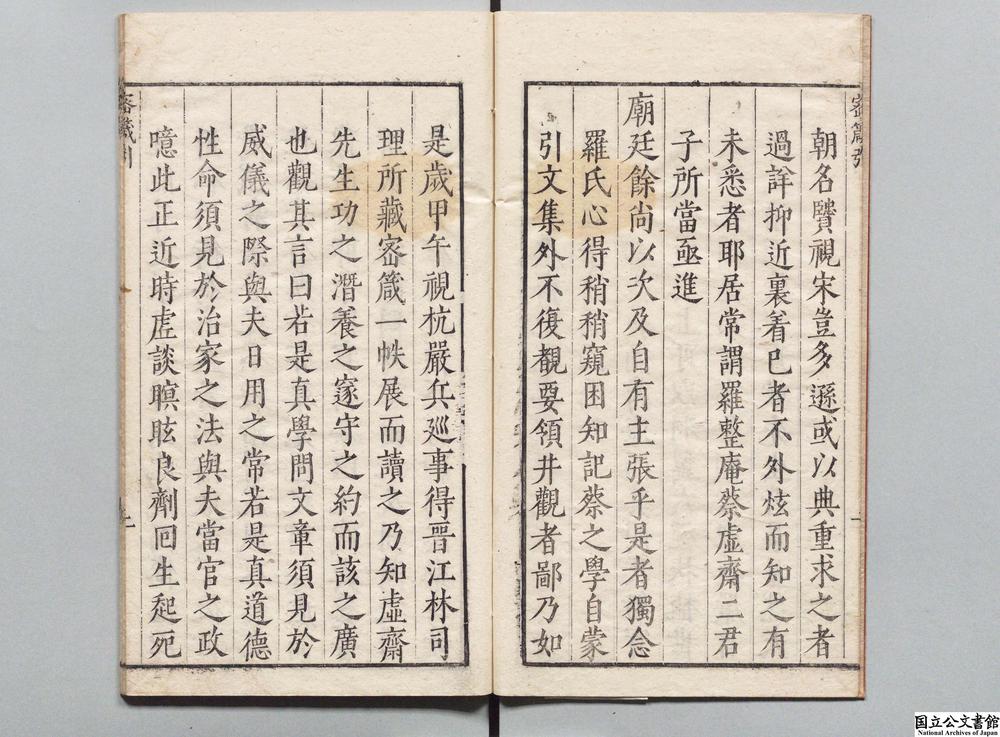 朝名賢視宋豈多遜或以典重求之者
過詳抑近裏着已者不外炫而知之有
未悉者耶居常謂羅整庵蔡虛齋二君
子所當亟進
廟廷餘尚以次及自有主張乎是者獨念
羅氏心得稍稍窺困知記蔡之學自蒙
引文集外不復覩要領井觀者鄙乃如
是歲甲午視杭嚴兵廵事得晉江林司
理所藏密箴一帙展而讀之乃知虛齋
先生功之潛養之邃守之約而該之廣
也觀其言曰若是真學問文章須見於
威儀之際與夫日用之常若是真道德
性命須見於治家之法與夫當官之政
噫此正近時虛談瞑眩良劑囘生起死
密箴
国立公文書館
National Archives of Japan